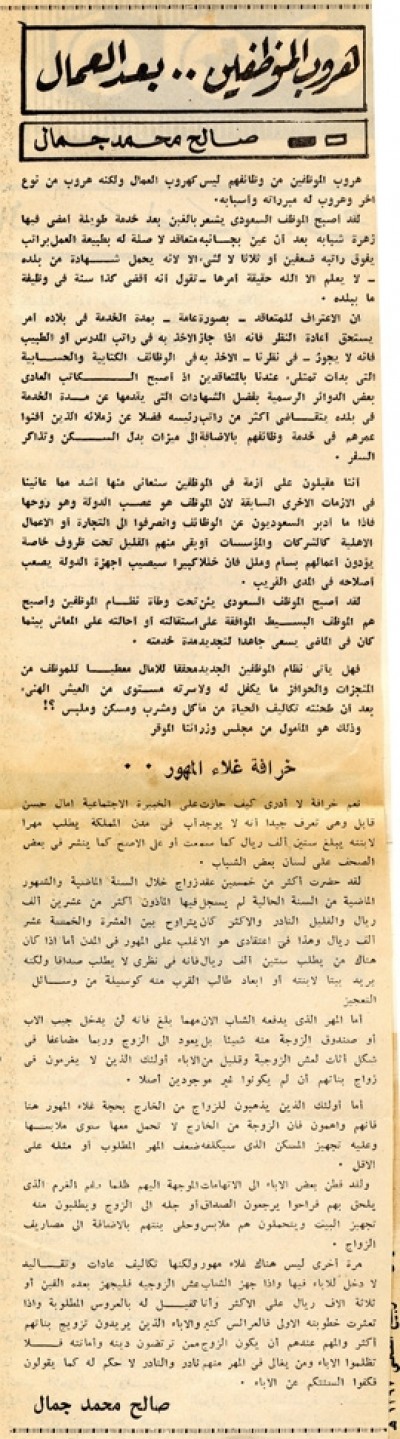 هروب الموظفين .. بعد العمال
صالح محمد جمال
هروب الموظفين من وظائفهم ليس كهروب العمال ولكنه هروب من نوع
آخر وهروب له مبرراته وأسبابه .
لقد أصبح الموظف السعودى يشعر بالغبن بعد خدمة طويلة أمضى فيها
زهرة شبابه بعد أن عين بجانبه متعاقد لا صلة له بطبيعة العمل براتب
يفوق راتبه ضعفين أو ثلاثا لا لشىء الا لانه يحمل شهادة من بلده
ـ لا يعلم الا الله حقيقة أمرها ـ تقول أنه أقضى كذا سنة فى وظيفة
ما ببلده .
ان الاعتراف للمتعاقد ـ بصورة عامة ـ بمدة الخدمة فى بلاده أمر
يستحق أعادة النظر فانه اذا جاز الاخذ به فى راتب المدرس أو الطبيب
فانه لا يجوز ـ فى نظرنا ـ الاخذ به فى الوظائف الكتابية والحسابية
التى بدأت تمتلىء عندنا بالمتعاقدين اذ أصبح الكاتب العادى
بعض الدوائر الرسمية بفضل الشهادات التى يقدمها عن مدة الخدمة
فى بلده يتقاضى أكثر من راتب رئيسه فضلا عن زملائه الذين أفنوا
عمرهم فى خدمة وظائفهم بالاضافة الى ميزات بدل السكن وتذاكر
السفر .
أننا مقبلون على أزمة فى الموظفين سنعانى منها أشد مما عانينا
فى الازمات الاخرى السابقة لان الموظف هو عصب الدولة وهو روحها
فاذا ما أدبر السعوديون عن الوظائف وانصرفوا الى التجارة أو الاعمال
الاهلية كالشركات والمؤسسات أو بقى منهم القليل تحت ظروف خاصة
يؤدون أعمالهم بسأم وملل فان خللا كبيرا سيصيب أجهزة الدولة يصعب
أصلاحه فى المدى القريب .
لقد أصبح الموظف السعودى يئن تحت وطأة نظام الموظفين وأصبح
هم الموظف البسيط الموافقة على استقالته أو أحالته على المعاش بينما
كان فى الماضى يسعى جاهدا لتجديد مدة خدمته .
فهل يأتى نظام الموظفين الجديد محققا للآمال معطيا للموظف من
المنجزات والحوافز ما يكفل له ولاسرته مستوى من العيش الهنىء
بعد أن طحنته تكاليف الحياة من مأكل ومشرب ومسكن وملبس ؟!
وذلك هو المأمول من مجلس وزرائنا الموقر
خرافة غلاء المهور . .
نعم خرافة لا أدرى كيف جازت على الخبيرة الاجتماعية امال حسن
قابل وهى تعرف جيدا أنه لا يوجد أب فى مدن المملكة يطلب مهرا
لابنته يبلغ ستين ألف ريال كما سمعت أو على الاصح كما ينشر فى بعض
الصحف على لسان بعض الشباب .
لقد حضرت أكثر من خمسين عقد زواج خلال السنة الماضية والشهور
الماضية من السنة الحالية لم يسجل فيها المأذون أكثر من عشرين ألف
ريال والقليل النادر والاكثر كان يتراوح بين العشرة والخمسة عشر
ألف ريال وهذا فى اعتقادى هو الاغلب على المهور فى المدن أما اذا كان
هناك من يطلب ستين ألف ريال فانه فى نظرى لا يطلب صداقا ولكنه
يريد بيتا لابنته أو ابعاد طالب القرب منه كوسيلة من وسائل
التعجيز
أما المهر الذى يدفعه الشباب الان مهما بلغ فانه لن يدخل جيب الاب
أو صندوق الزوجة منه شيئا بل يعود الى الزوج وربما مضاعفا فى
شكل أثاث لعش الزوجية وقليل من الاباء أولئك الذين لا يغرمون فى
زواج بناتهم أن لم يكونوا غير موجودين أصلا .
أما أولئك الذين يذهبون للزواج من الخارج بحجة غلاء المهور هنا
فانهم واهمون فان الزوجة من الخارج لا تحمل معها سوى ملابسها
وعليه تجهيز المسكن الذى سيكلفه ضعف المهر المطلوب أو مثله على
الاقل .
ولقد فطن بعض الاباء الى الاتهامات الموجهة اليهم ظلما رغم الغرم الذى
يلحق بهم فراحوا يرجعون الصداق أو جله الى الزوج ويطلبون منه
تجهيز البيت ويتحملون هم ملابس وحلى بنتهم بالاضافة الى مصاريف
الزواج .
مرة أخرى ليس هناك غلاء مهور ولكنها تكاليف عادات وتقاليد
لا دخل للاباء فيها واذا جهز الشاب عش الزوجية فليجهز بعده ألفين أو
ثلاثة الاف ريال على الاكثر وأنا كفيل له بالعروس المطلوبة واذا
تعثرت خطوبته الاولى فالعرائس كثير والاباء الذين يريدون تزويج بناتهم
أكثر والمهم عندهم أن يكون الزوج ممن ترتضون دينه وأمانته فلا
تظلموا الاباء ومن يغالى فى المهر منهم نادر والنادر لا حكم له كما يقولون
فكفوا السنتكم عن الاباء .
صالح محمد جمال